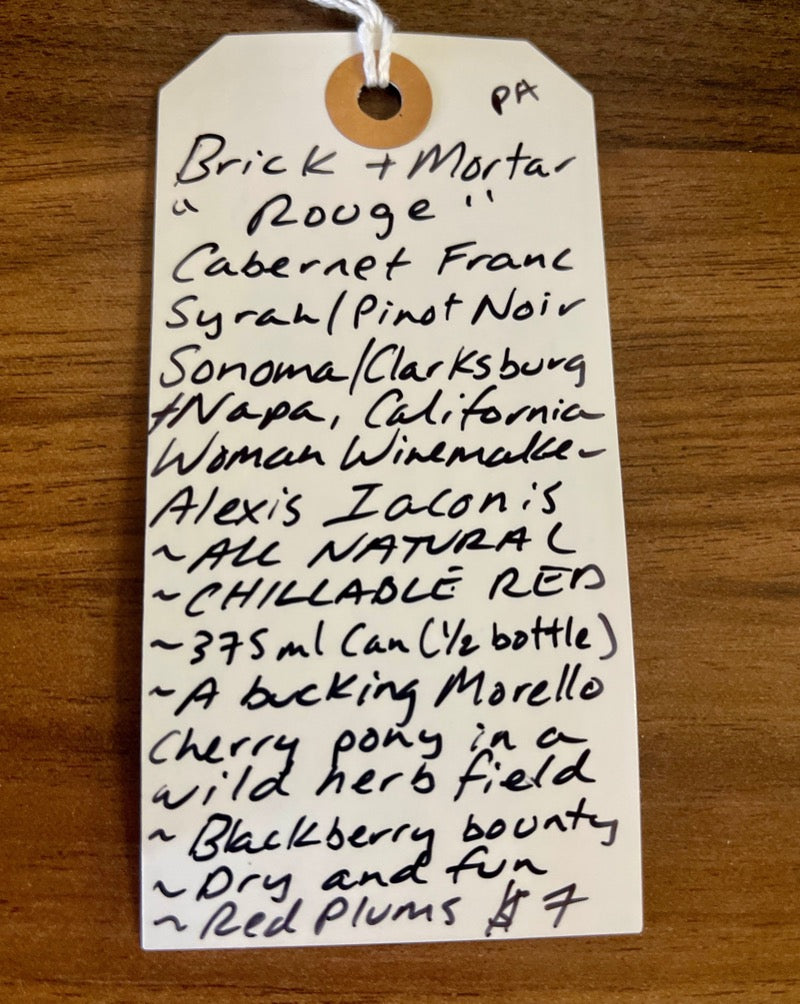 PA
Brick + Mortar
"Rouge"
Cabernet Franc
Syrah/Pinot Noir
Sonoma/Clarksburg
+Napa, California
Woman Winemaker
Alexis Iaconis
~ALL NATURAL
~CHILLABLE RED
~375ml Can (1/2 bottle)
~A bucking Morello
Cherry pony in a
wild herb field
~Blackberry bounty
~Dry and fun
~Red Plums $7